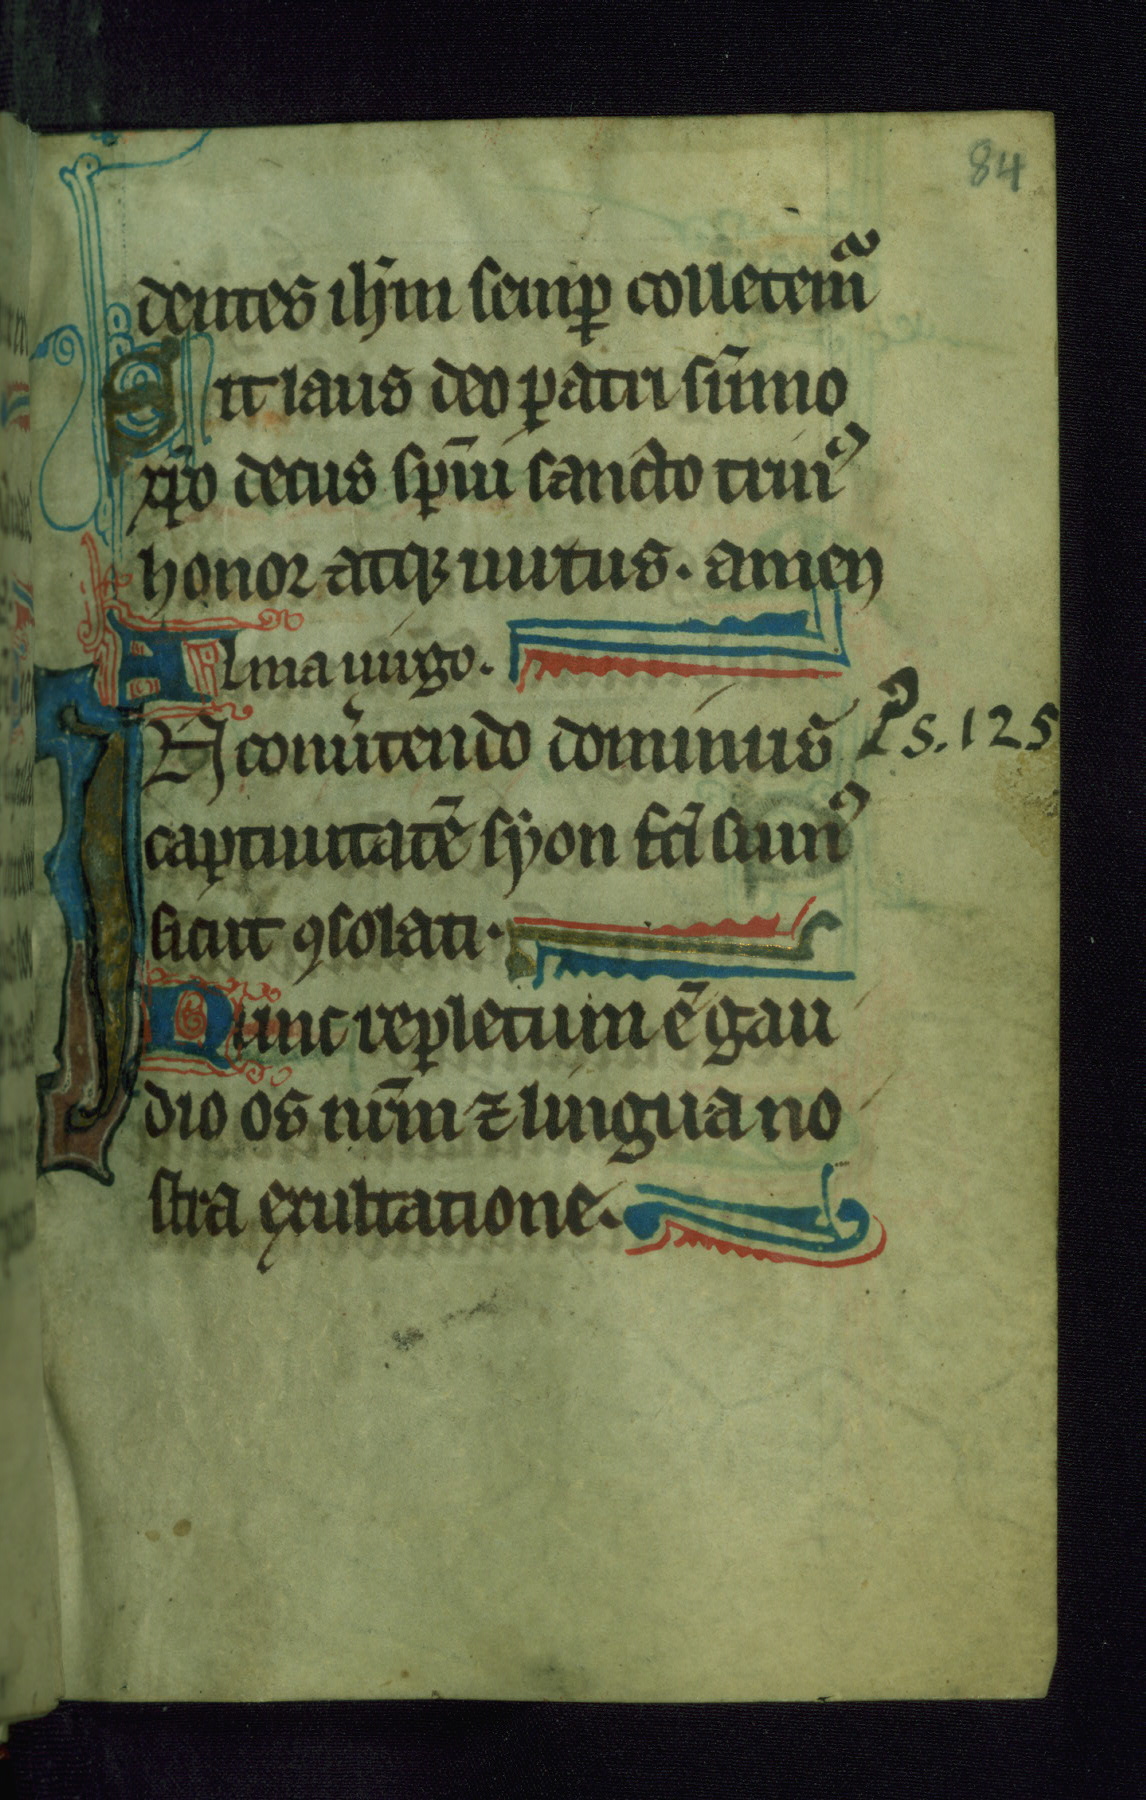 84
dentes ih̄m semꝑ colletem̃
Sit laus deo patri sūmo
xp̄o decus sp̄iu sancto trinꝰ
honor atqꝫ uirtus. amen
Alma uirgo.
IN conu̓tendo dominus Ps. 125
captiuitatē syon fc̄i sumꝰ
sicut ꝯsolati.
Tunc repletum ē gau
dio os nrm̄ ⁊ lingua no
stra exultatione.